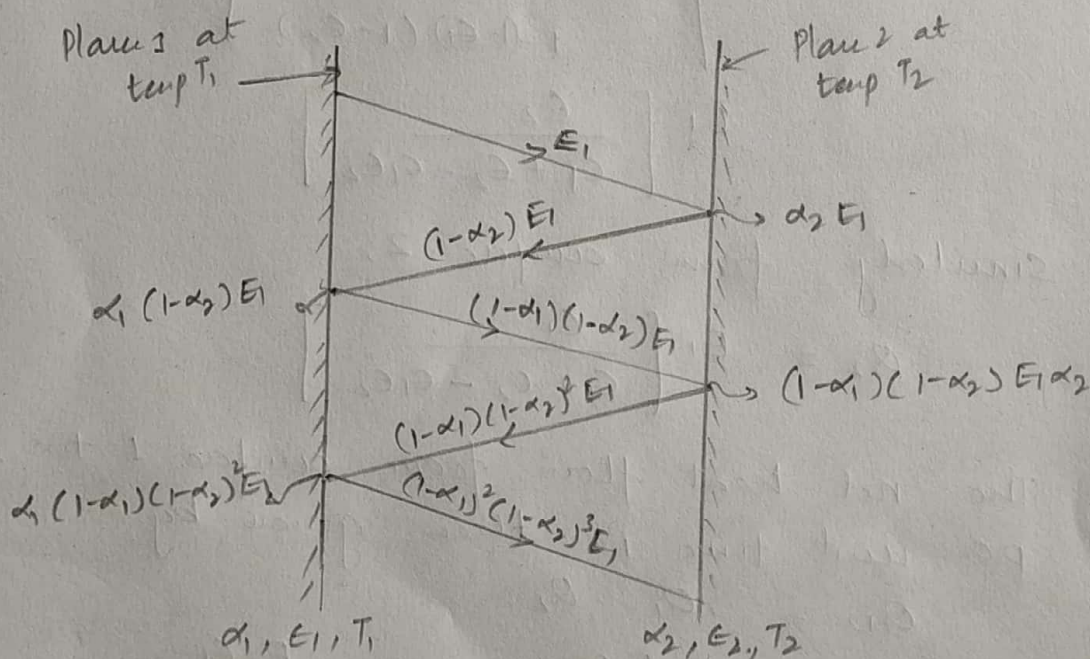 Plane 1 at
temp T₁
Plane 2 at
temp T₂
E₁
α₂ E₁
(1-α₂) E₁
α₁ (1-α₂) E₁
(1-α₁)(1-α₂) E₁
(1-α₁)(1-α₂) E₁ α₂
(1-α₁)(1-α₂)² E₁
α₁ (1-α₁)(1-α₂)² E₁
(1-α₁)²(1-α₂)³ E₁
α₁, ε₁, T₁
α₂, ε₂, T₂